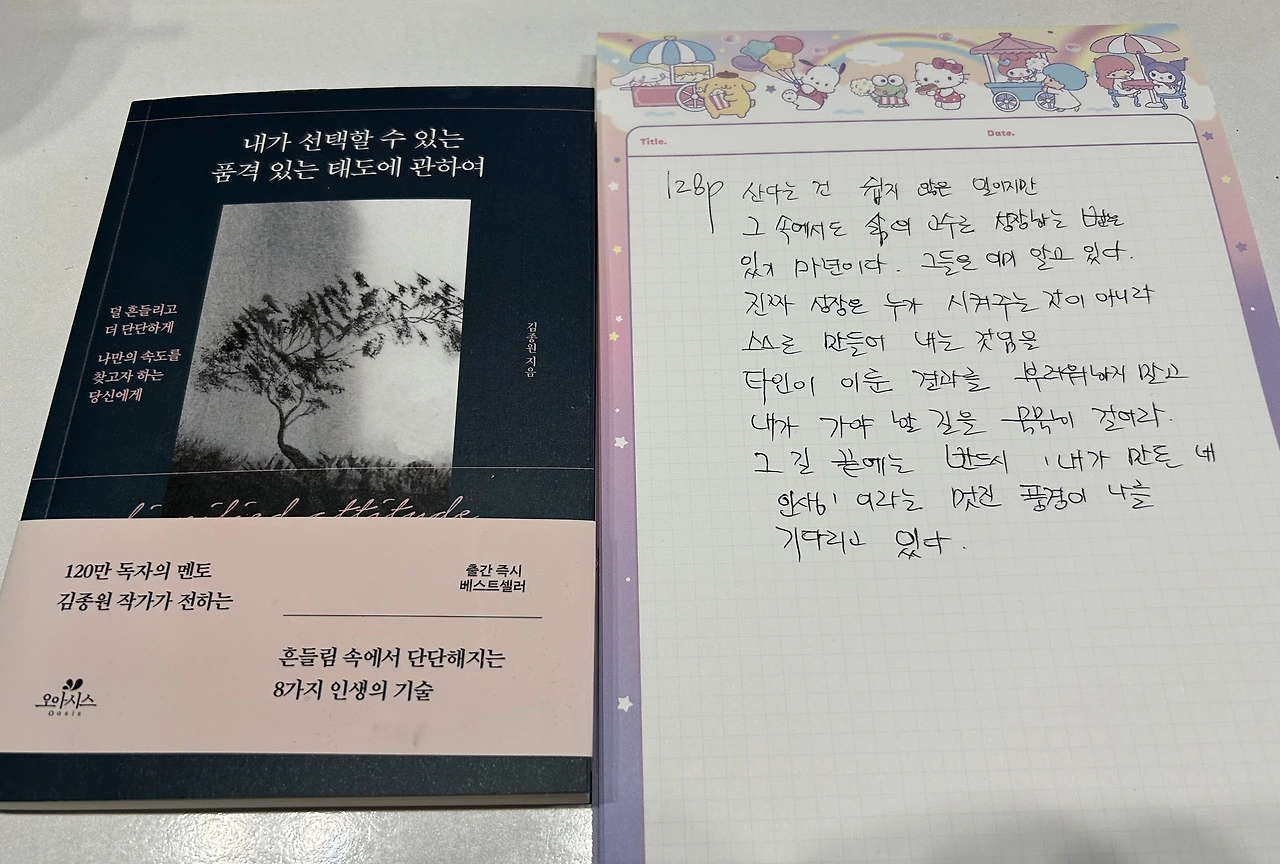 내가 선택할 수 있는
품격 있는 태도에 관하여
덜 흔들리고
더 단단하게
나만의 속도를
찾고자 하는
당신에게
김종원 지음
120만 독자의 멘토
김종원 작가가 전하는
출간 즉시
베스트셀러
흔들림 속에서 단단해지는
8가지 인생의 기술
오아시스
Oasis
Title.
Date.
128p 산다는 건 쉽지 않은 일이지만
그 속에서도 삶의 고수로 성장하는 법은
있기 마년이다. 그들은 이미 알고 있다.
진짜 성장은 누가 시켜주는 것이 아니라
스스로 만들어 내는 것임을
타인이 이룬 결과를 부러워하지 말고
내가 가야 할 길을 묵묵히 걸어라.
그 길 끝에는 반드시 '내가 만든 내
인생' 이라는 멋진 풍경이 나를
기다리고 있다.